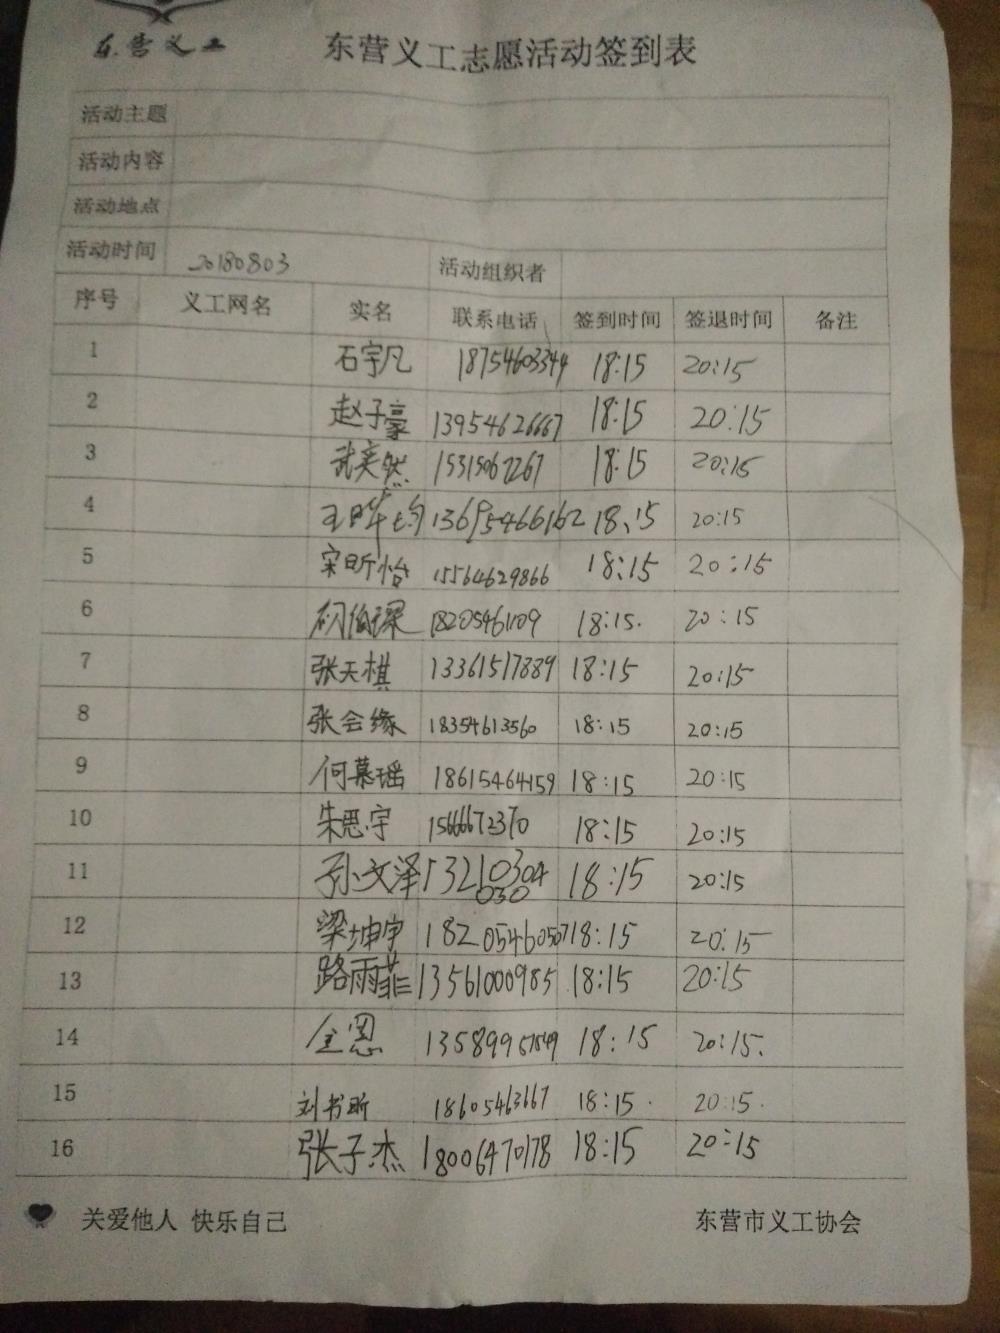 东营义工
东营义工志愿活动签到表
活动主题
活动内容
活动地点
活动时间 20180803 活动组织者
序号 义工网名 实名 联系电话 签到时间 签退时间 备注
1 石宇凡 18754603344 18:15 20:15
2 赵子豪 13954626667 18:15 20:15
3 武奕然 15315067267 18:15 20:15
4 13695466162 18:15 20:15
5 宋昕怡 15564629866 18:15 20:15
6 18:15. 20:15
7 张天棋 13361517889 18:15 20:15
8 张会缘 18354613560 18:15 20:15
9 何慕瑶 18615464159 18:15 20:15
10 朱思宇 18:15 20:15
11 孙文泽 13210304 18:15 20:15
030
12 梁坤宇 18205460507 18:15 20:15
13 路雨菲 13561000985 18:15 20:15
14 全恩 13589957549 18:15 20:15.
15 刘书昕 18605463667 18:15. 20:15.
16 张子杰 18006470178 18:15 20:15
关爱他人 快乐自己 东营市义工协会